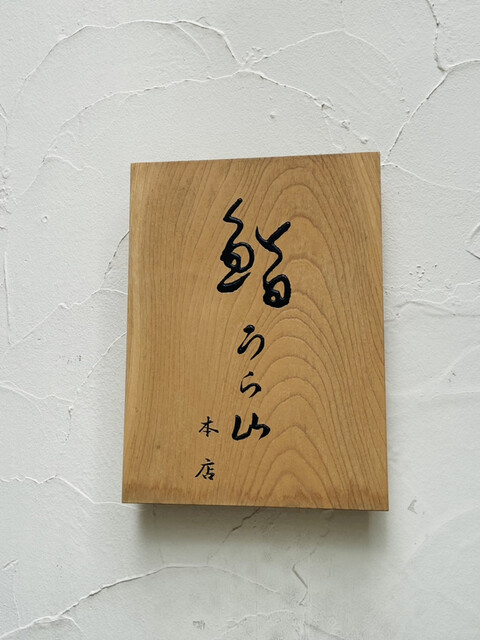 鮨うら山
本店